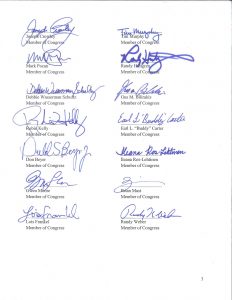 Joseph Crowley
Member of Congress
Tim Murphy
Member of Congress
Mark Pocan
Member of Congress
Randy Hultgren
Member of Congress
Debbie Wasserman Schultz
Debbie Wasserman Schultz
Member of Congress
Gus M. Bilirakis
Member of Congress
Robin Kelly
Member of Congress
Earl L. "Buddy" Carter
Earl L. "Buddy" Carter
Member of Congress
Don Beyer
Member of Congress
Ileana Ros-Lehtinen
Ileana Ros-Lehtinen
Member of Congress
Gwen Moore
Member of Congress
Brian Mast
Member of Congress
Lois Frankel
Lois Frankel
Member of Congress
Randy Weber
Randy Weber
Member of Congress